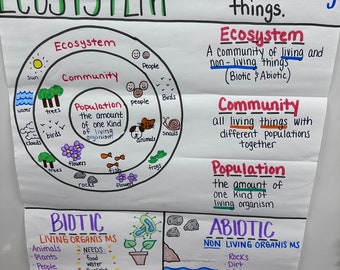 ECOSYSTEM
things.
Ecosystem
Community
Population
the amount
of one kind
of living
organism
sun
water
clouds
trees
birds
flowers
rocks
People
Birds
snails
clouds
frogs
trees
people
birds
animals
fish
flowers
Ecosystem
A community of living and
non-living things
(Biotic & Abiotic)
Community
all living things with
different populations
together
Population
the amount of
one kind of
living organism
BIOTIC
LIVING ORGANISMS
-Animals
-Plants
-People
NEEDS
food
water
ABIOTIC
NON LIVING ORGANISMS
Rocks
-Dirt